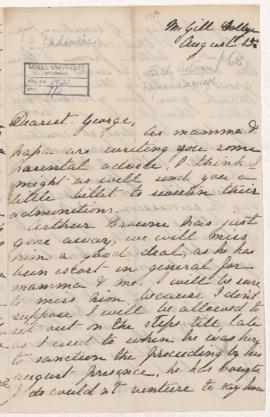 McGill College
August 13
Dearest George,
As mamma &
papa are writing you some
parental advice, I think I
might as well send you a
little billet to sweeten their
admonitions.
Arthur Browne has just
gone away, we will miss
him a good deal, as he has
been escort in general for
mamma & me. I will be sure
to miss him, because I don't
suppose I will be allowed to
sit out on the steps till late
as I used to when he was here
to sanction the proceeding by his
august presence, he has bought
I do could nt venture to say how